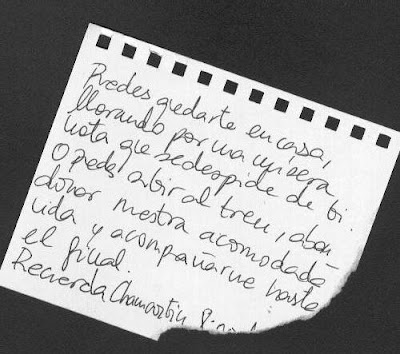 Puedes quedarte en casa,
llorando por una mísera
nota que se despide de ti.
O puedes subir al tren, aban
donar nuestra acomodada
vida y acompañarme hasta
el final.
Recuerda Chamartín